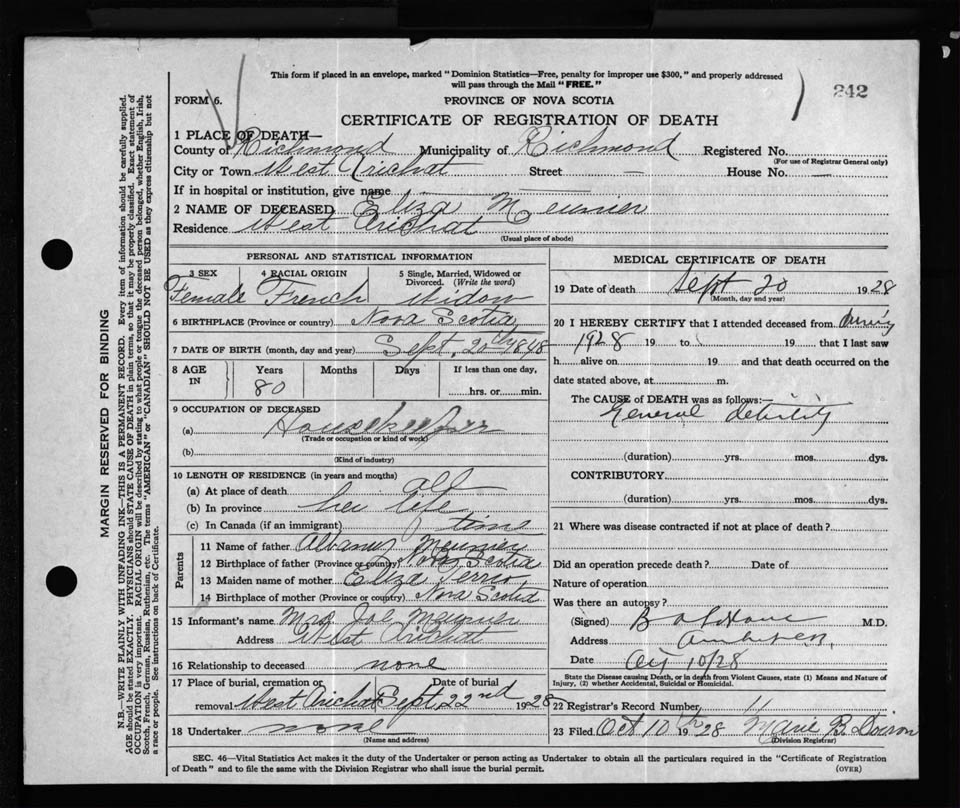 This form if placed in an envelope, marked "Dominion Statistics—Free, penalty for improper use $300," and properly addressed
will pass through the Mail "FREE."
242
FORM 6.
PROVINCE OF NOVA SCOTIA
CERTIFICATE OF REGISTRATION OF DEATH
1 PLACE OF DEATH—
County of Richmond Municipality of Richmond Registered No.
(For use of Registrar General only)
City or Town West Arichat Street — House No. —
If in hospital or institution, give name
2 NAME OF DECEASED Eliza Meunier
Residence West Arichat
(Usual place of abode)
PERSONAL AND STATISTICAL INFORMATION
3 SEX 4 RACIAL ORIGIN 5 Single, Married, Widowed or Divorced. (Write the word)
Female French Widow
6 BIRTHPLACE (Province or country) Nova Scotia
7 DATE OF BIRTH (month, day and year) Sept. 20th 1848
8 AGE IN Years Months Days If less than one day,
80 hrs. or min.
9 OCCUPATION OF DECEASED
(a) Housekeeper
(Trade or occupation or kind of work)
(b)
(Kind of industry)
10 LENGTH OF RESIDENCE (in years and months)
(a) At place of death all
(b) In province her life
(c) In Canada (if an immigrant) time
Parents
11 Name of father Albanus Meunier
12 Birthplace of father (Province or country) Nova Scotia
13 Maiden name of mother Eliza Terrio
14 Birthplace of mother (Province or country) Nova Scotia
15 Informant's name Mrs Joe Meunier
Address West Arichat
16 Relationship to deceased none
17 Place of burial, cremation or removal West Arichat Date of burial Sept. 22nd 1928
18 Undertaker none
(Name and address)
MEDICAL CERTIFICATE OF DEATH
19 Date of death Sept 20 1928
(Month, day and year)
20 I HEREBY CERTIFY that I attended deceased from during
1928 19 to 19 that I last saw
h alive on 19 and that death occurred on the
date stated above, at m.
The CAUSE of DEATH was as follows:—
General debility
(duration) yrs. mos. dys.
CONTRIBUTORY
(duration) yrs. mos. dys.
21 Where was disease contracted if not at place of death?
Did an operation precede death? Date of
Nature of operation
Was there an autopsy?
(Signed) M.D.
Address
Date Oct 10/28
State the Disease causing Death, or in death from Violent Causes, state (1) Means and Nature of
Injury, (2) whether Accidental, Suicidal or Homicidal.
22 Registrar's Record Number 11
23 Filed Oct 10th 1928 Marie B. Doiron
(Division Registrar)
SEC. 46—Vital Statistics Act makes it the duty of the Undertaker or person acting as Undertaker to obtain all the particulars required in the "Certificate of Registration
of Death" and to file the same with the Division Registrar who shall issue the burial permit.
(OVER)
MARGIN RESERVED FOR BINDING
N.B.—WRITE PLAINLY WITH UNFADING INK—THIS IS A PERMANENT RECORD. Every item of information should be carefully supplied.
AGE should be stated EXACTLY. PHYSICIANS should STATE CAUSE OF DEATH in plain terms, so that it may be properly classified. Exact statement of
OCCUPATION is very important. RACIAL ORIGIN will be described by stating to what people or tongue the deceased person belonged, whether English, Irish,
Scotch, French, German, Russian, Ruthenian, etc. The terms "AMERICAN" or "CANADIAN" SHOULD NOT BE USED as they express citizenship but not
a race or people. See instructions on back of Certificate.